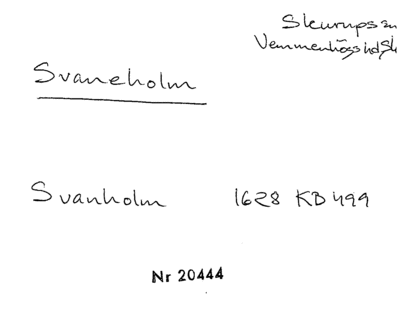 Skurups sn
Vemmenhögs hd Sk
Svaneholm
Svanholm 1628 KB 499
Nr 20444